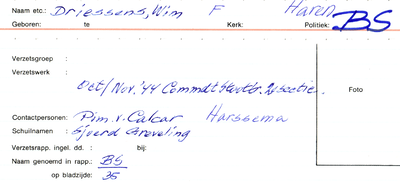 Naam etc.: Driessens, Wim F Haren
Geboren: te Kerk: Politiek: BS
Verzetsgroep :
Verzetswerk :
Oct/Nov. '44 Commdt Stoottr. 2e sectie.
Foto
Contactpersonen: Pim. v. Calcar Harssema
Schuilnamen : Sjoerd Greveling
Verzetsrapp. ingel. dd. : bij:
Naam genoemd in rapp.: BS
op bladzijde: 35